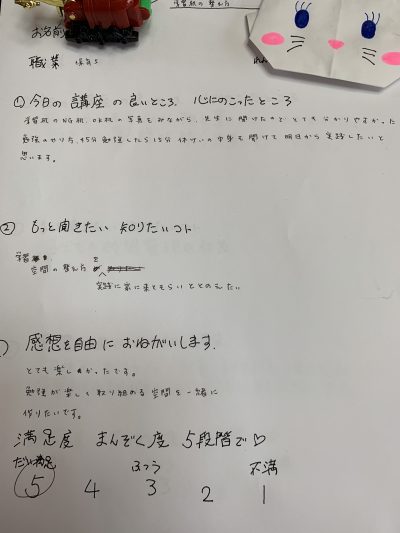 学習机の整え方
お名前
職業 保育士
①今日の講座の良いところ、心にのこったところ
学習机のNG机、OK机の写真もみながら、先生に聞けたのでとても分かりやすかった
勉強のやり方、45分勉強したら15分休けいの事も聞けて明日から実践したいと
思います。
② もっと聞きたい 知りたいコト
学習
空間の整え方を
実際に家に来てもらいととのえたい
感想を自由におねがいします。
とても楽しかったです。
勉強が楽しく取り組める空間を一緒に
作りたいです。
満足度 まんぞく度 5段階で♡
だい満足 ふつう 不満
5 4 3 2 1